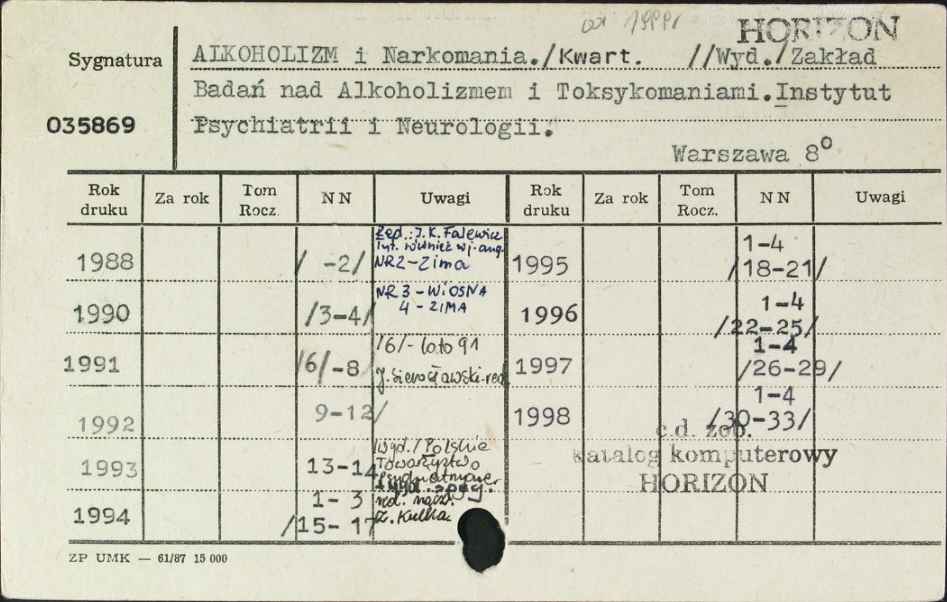 od 1999r HORIZON
Sygnatura ALKOHOLIZM i Narkomania./Kwart. //Wyd./Zakład
Badań nad Alkoholizmem i Toksykomaniami.Instytut
035869 Psychiatrii i Neurologii.
Warszawa 8⁰
Rok druku Za rok Tom Rocz. NN Uwagi Rok druku Za rok Tom Rocz. NN Uwagi
1988 / -2/
Red.: J.K. Falewicz
również w j. ang.
NR2-Zima
1995 1-4
/18-21/
1990 /3-4/
NR 3 - WiOSNA
4 - ZIMA
1996 1-4
/22-25/
1991 /6/-8
/6/- lato 91
1997 1-4
/26-29/
1992 9-12/
1998 1-4
/30-33/
1993 13-14
Wyd./Polskie
Towarzystwo
1994 1-3
/15-17
red. nacz.
Z. Kulka
c.d. zob.
katalog komputerowy
HORIZON
ZP UMK — 61/87 15 000